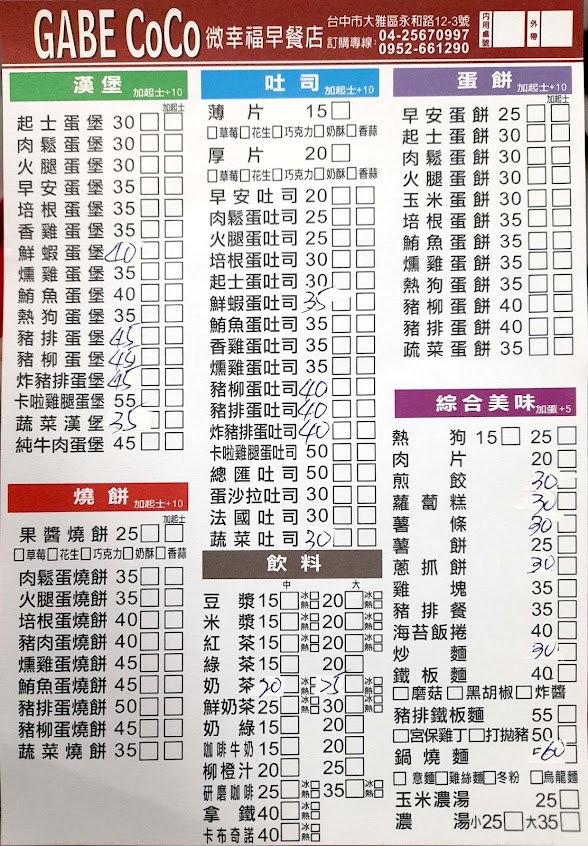 GABE CoCo 微幸福早餐店 台中市大雅區永和路12-3號
訂購專線: 04-25670997
0952-661290
內用桌號 外帶
漢堡 加起士+10
加起士
起士蛋堡 30
肉鬆蛋堡 30
火腿蛋堡 30
早安蛋堡 35
培根蛋堡 35
香雞蛋堡 35
鮮蝦蛋堡 40
燻雞蛋堡 35
鮪魚蛋堡 40
熱狗蛋堡 35
豬排蛋堡 45
豬柳蛋堡 45
炸豬排蛋堡 45
卡啦雞腿蛋堡 55
蔬菜漢堡 35
純牛肉蛋堡 45
燒餅 加起士+10
加起士
果醬燒餅 25
草莓 花生 巧克力 奶酥 香蒜
肉鬆蛋燒餅 35
火腿蛋燒餅 35
培根蛋燒餅 40
豬肉蛋燒餅 40
燻雞蛋燒餅 45
鮪魚蛋燒餅 45
豬排蛋燒餅 50
豬柳蛋燒餅 45
蔬菜燒餅 35
吐司 加起士+10
薄片 15
草莓 花生 巧克力 奶酥 香蒜
厚片 20
草莓 花生 巧克力 奶酥 香蒜
早安吐司 20
肉鬆蛋吐司 25
火腿蛋吐司 25
培根蛋吐司 30
起士蛋吐司 30
鮮蝦蛋吐司 35
鮪魚蛋吐司 35
香雞蛋吐司 35
燻雞蛋吐司 35
豬柳蛋吐司 40
豬排蛋吐司 40
炸豬排蛋吐司 40
卡啦雞腿蛋吐司 50
總匯吐司 50
蛋沙拉吐司 30
法國吐司 30
蔬菜吐司 30
飲料
中 大
豆漿 15 冰 熱 20 冰 熱
米漿 15 冰 熱 20 冰 熱
紅茶 15 冰 熱 20 冰 熱
綠茶 15 20
奶茶 20 冰 熱 25 冰 熱
鮮奶茶 25 冰 熱 30 冰 熱
奶綠 15 20
咖啡牛奶 15 20
柳橙汁 20 25
研磨咖啡 25 冰 熱 35 冰 熱
拿鐵 40 冰 熱
卡布奇諾 40 冰 熱
蛋餅 加起士+10
早安蛋餅 25
起士蛋餅 30
肉鬆蛋餅 30
火腿蛋餅 30
玉米蛋餅 30
培根蛋餅 35
鮪魚蛋餅 35
燻雞蛋餅 35
熱狗蛋餅 35
豬柳蛋餅 40
豬排蛋餅 40
蔬菜蛋餅 35
綜合美味 加蛋+5
熱狗 15 25
肉片 20
煎餃 30
蘿蔔糕 30
薯條 30
薯餅 25
蔥抓餅 30
雞塊 35
豬排餐 35
海苔飯捲 40
炒麵 30
鐵板麵 40
蘑菇 黑胡椒 炸醬
豬排鐵板麵 55
宮保雞丁 打拋豬 50
鍋燒麵 60
意麵 雞絲麵 冬粉 烏龍麵
玉米濃湯 25
濃湯 小25 大35